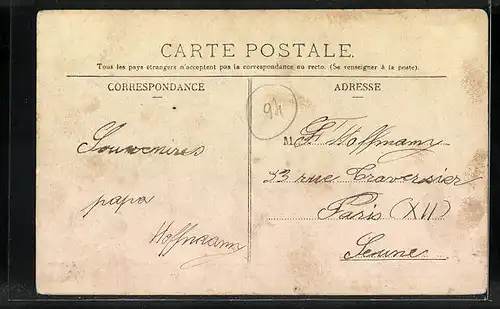 CARTE POSTALE.
Tous les pays étrangers n'acceptent pas la correspondance au recto. (Se renseigner à la poste).
CORRESPONDANCE
ADRESSE
94
Souvenires
papa
Hoffmann
M Hoffmann
33 rue Traversier
Paris (XII)
Seine